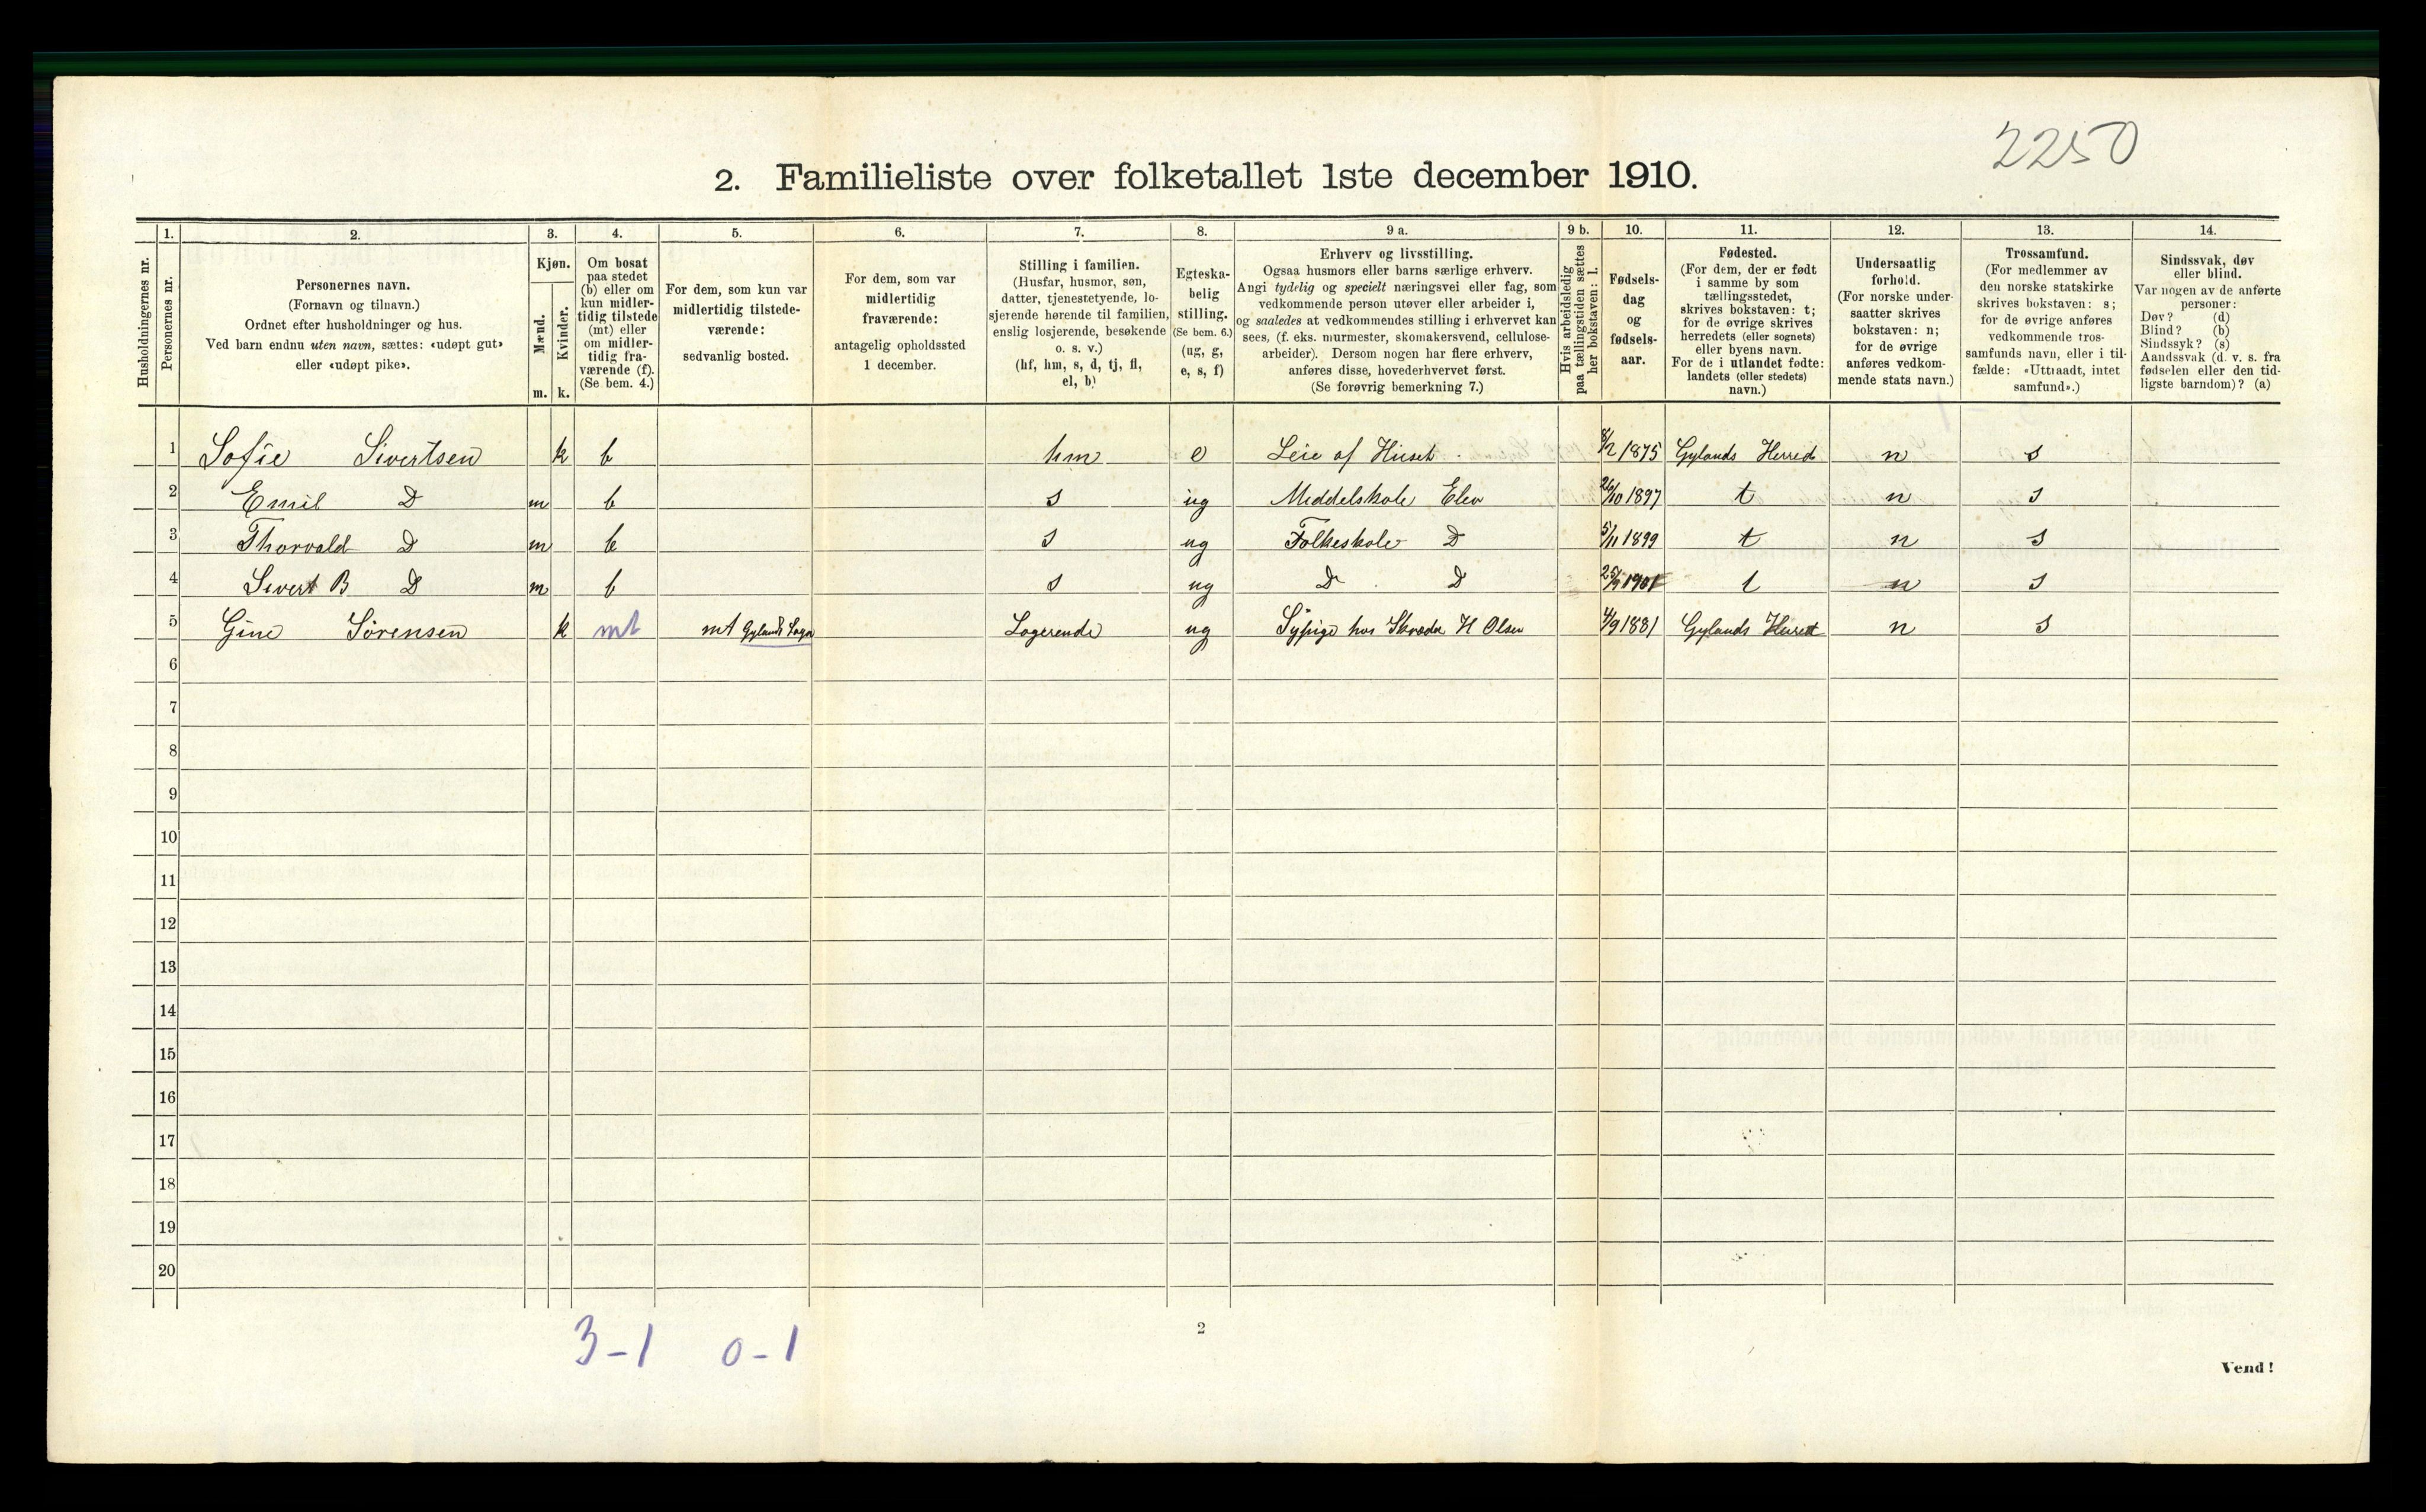 2250
2. Familieliste over folketallet 1ste december 1910.
Husholdningernes nr.
1. Personernes nr.
2. Personernes navn.
(Fornavn og tilnavn.)
Ordnet efter husholdninger og hus.
Ved barn endnu uten navn, sættes: «udøpt gut»
eller «udøpt pike».
3. Kjøn.
Mænd. Kvinder.
m. k.
4. Om bosat
paa stedet
(b) eller om
kun midler-
tidig tilstede
(mt) eller
om midler-
tidig fra-
værende (f).
(Se bem. 4.)
5. For dem, som kun var
midlertidig tilstede-
værende:
sedvanlig bosted.
6. For dem, som var
midlertidig
fraværende:
antagelig opholdssted
1 december.
7. Stilling i familien.
(Husfar, husmor, søn,
datter, tjenestetyende, lo-
sjerende hørende til familien,
enslig losjerende, besøkende
o. s. v.)
(hf, hm, s, d, tj, fl,
el, b)
8. Egteska-
belig
stilling.
(Se bem. 6.)
(ug, g,
e, s, f)
9 a. Erhverv og livsstilling.
Ogsaa husmors eller barns særlige erhverv.
Angi tydelig og specielt næringsvei eller fag, som
vedkommende person utøver eller arbeider i,
og saaledes at vedkommendes stilling i erhvervet kan
sees, (f. eks. murmester, skomakersvend, cellulose-
arbeider). Dersom nogen har flere erhverv,
anføres disse, hovederhvervet først.
(Se forøvrig bemerkning 7.)
9 b. Hvis arbeidsledig
paa tællingstiden sættes
her bokstaven: l.
10. Fødsels-
dag
og
fødsels-
aar.
11. Fødested.
(For dem, der er født
i samme by som
tællingsstedet,
skrives bokstaven: t;
for de øvrige skrives
herredets (eller sognets)
eller byens navn.
For de i utlandet fødte:
landets (eller stedets)
navn.)
12. Undersaatlig
forhold.
(For norske under-
saatter skrives
bokstaven: n;
for de øvrige
anføres vedkom-
mende stats navn.)
13. Trossamfund.
(For medlemmer av
den norske statskirke
skrives bokstaven: s;
for de øvrige anføres
vedkommende tros-
samfunds navn, eller i til-
fælde: «Uttraadt, intet
samfund».)
14. Sindssvak, døv
eller blind.
Var nogen av de anførte
personer:
Døv? (d)
Blind? (b)
Sindssyk? (s)
Aandssvak (d. v. s. fra
fødselen eller den tid-
ligste barndom)? (a)
1 Sofie Sivertsen k b hm e Leie af Huset 8/2 1875 Gylands Herred n s
2 Emil D m b s ug Middelskole Elev 26/10 1897 t n s
3 Thorvald D m b s ug Folkeskole D 5/11 1899 t n s
4 Sivert B D m b s ug D D 25/9 1901 t n s
5 Gine Sørensen k mt mt Gylands Sogn Logerende ug Sypige hos Skræder H Olsen 4/9 1881 Gylands Herred n s
6
7
8
9
10
11
12
13
14
15
16
17
18
19
20
3-1 0-1
2
Vend!